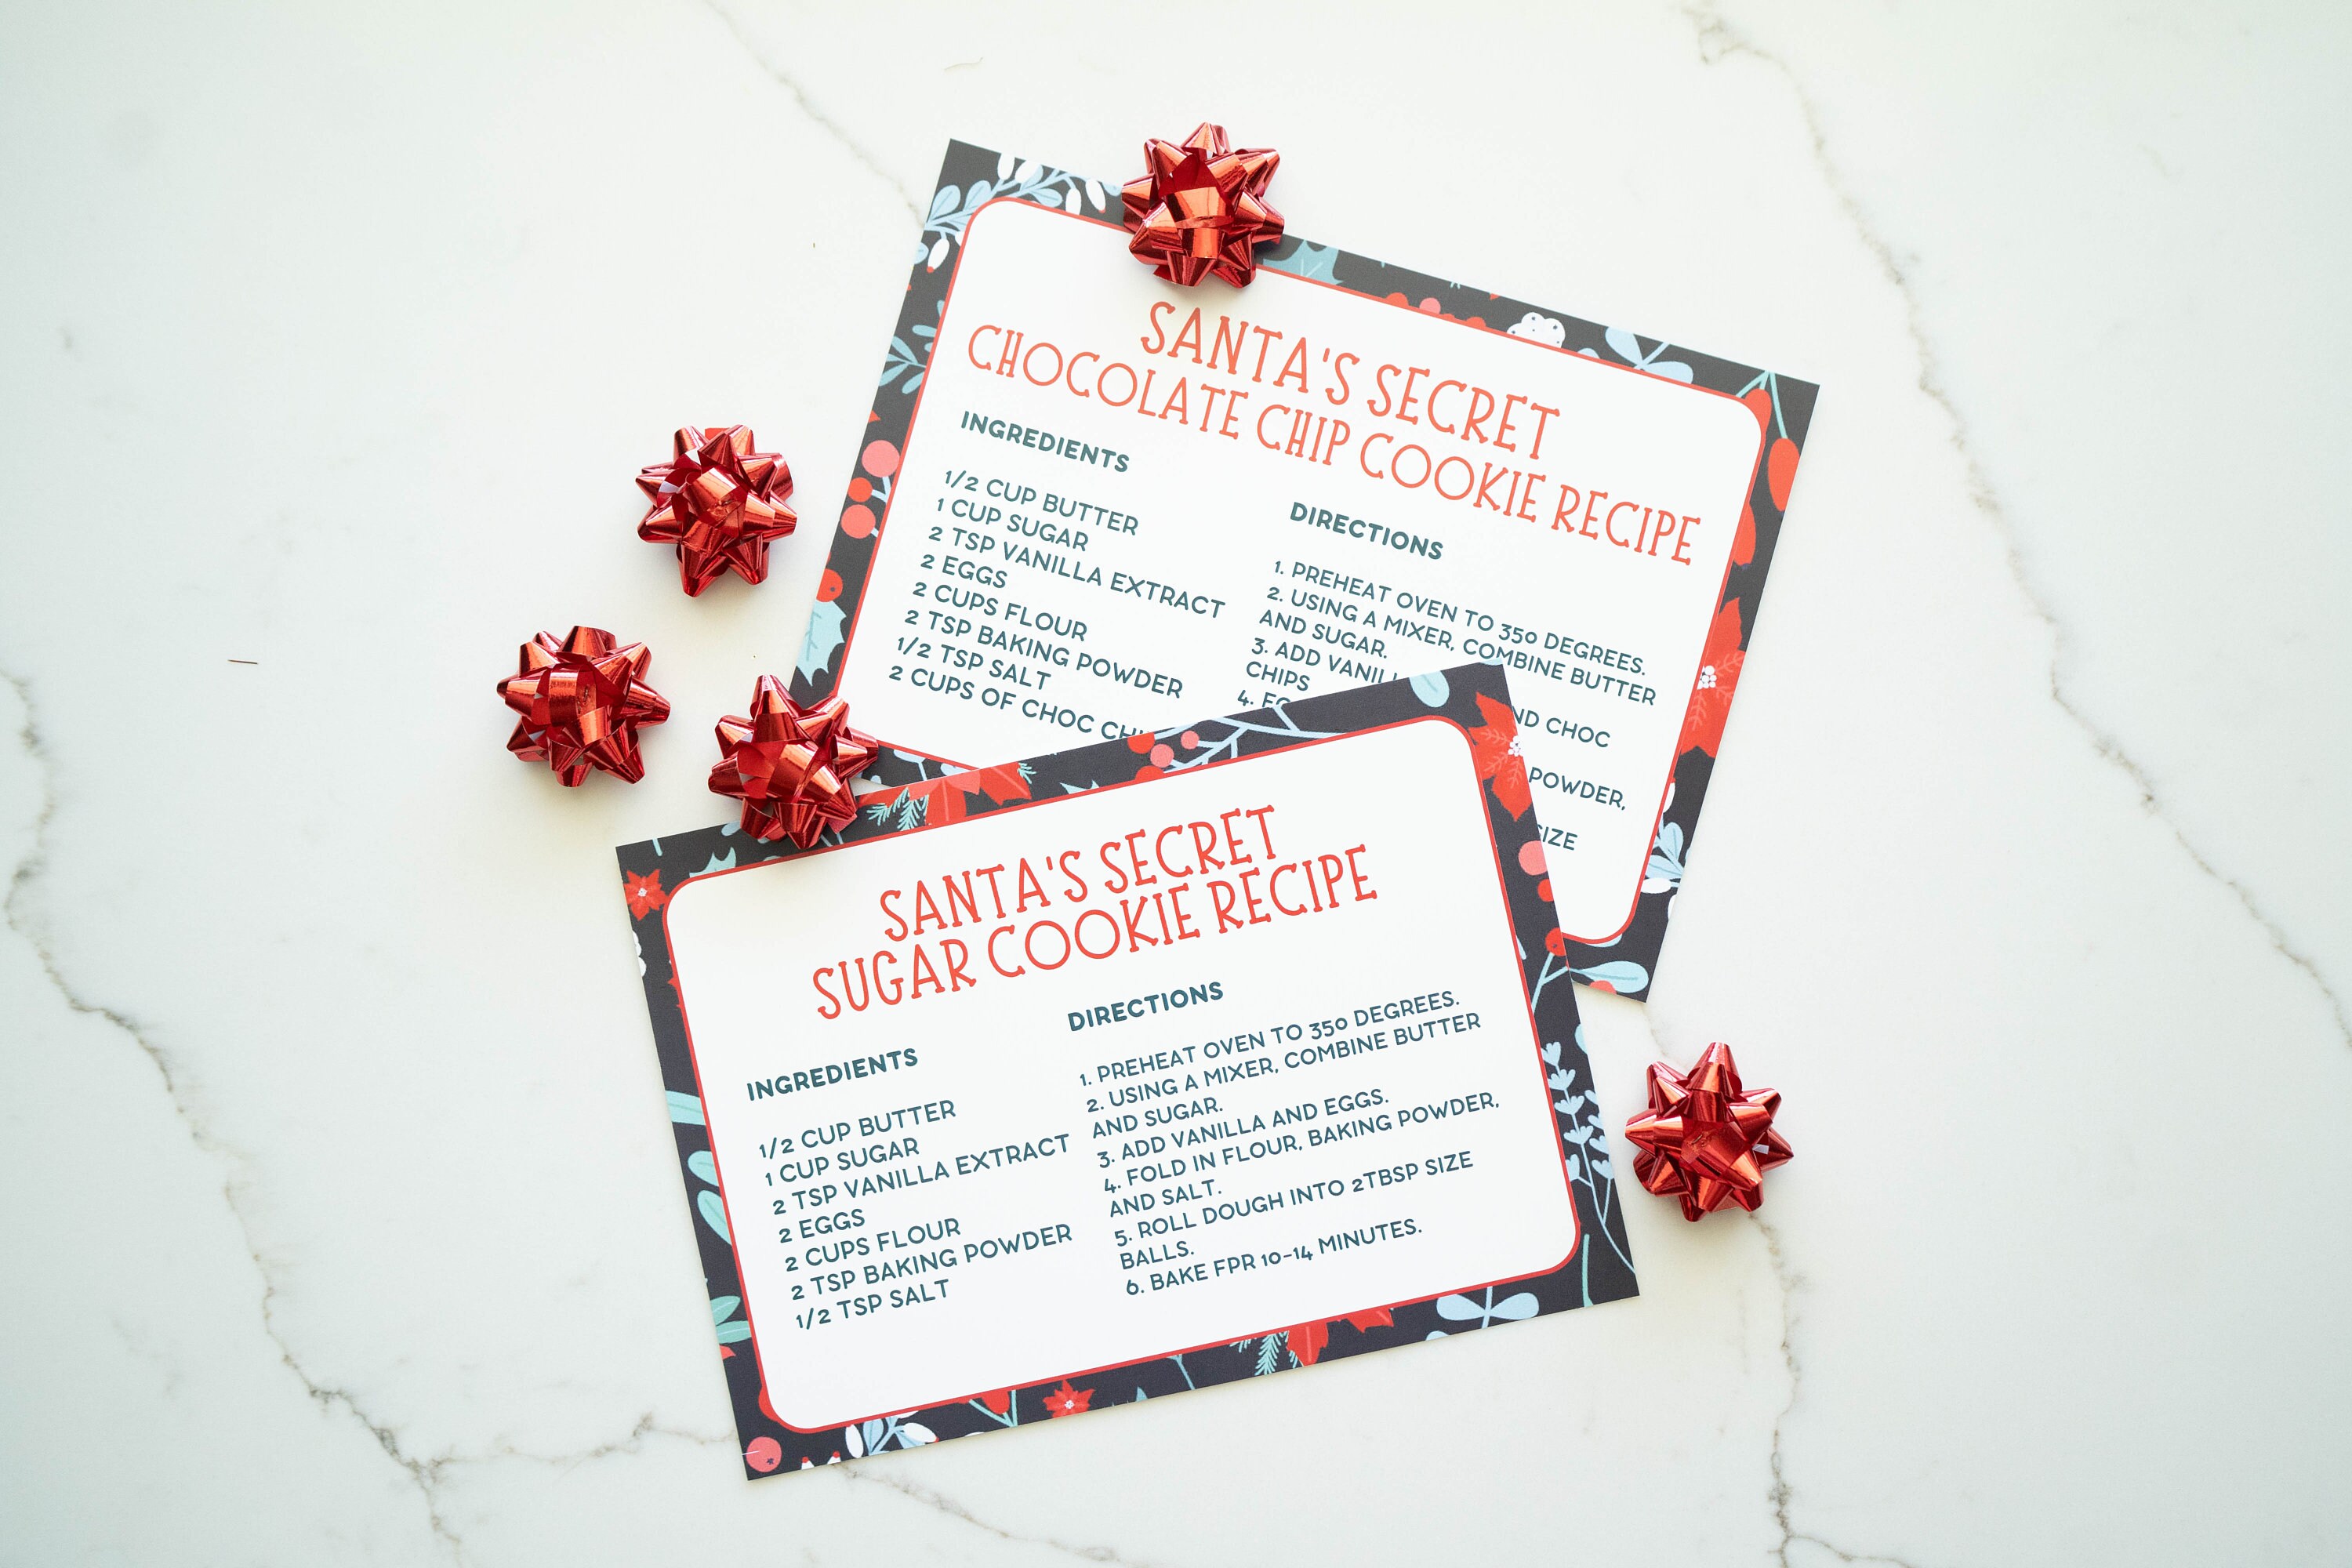 SANTA'S SECRET
CHOCOLATE CHIP COOKIE RECIPE
INGREDIENTS
1/2 CUP BUTTER
1 CUP SUGAR
2 TSP VANILLA EXTRACT
2 EGGS
2 CUPS FLOUR
2 TSP BAKING POWDER
1/2 TSP SALT
2 CUPS OF CHOC
DIRECTIONS
1. PREHEAT OVEN TO 350 DEGREES.
2. USING A MIXER, COMBINE BUTTER
AND SUGAR.
3. ADD
CHOC
CHIPS
4.
POWDER,
SIZE
SANTA'S SECRET
SUGAR COOKIE RECIPE
INGREDIENTS
1/2 CUP BUTTER
1 CUP SUGAR
2 TSP VANILLA EXTRACT
2 EGGS
2 CUPS FLOUR
2 TSP BAKING POWDER
1/2 TSP SALT
DIRECTIONS
1. PREHEAT OVEN TO 350 DEGREES.
2. USING A MIXER, COMBINE BUTTER
AND SUGAR.
3. ADD VANILLA AND EGGS.
4. FOLD IN FLOUR, BAKING POWDER,
AND SALT.
5. ROLL DOUGH INTO 2TBSP SIZE
BALLS.
6. BAKE FPR 10-14 MINUTES.